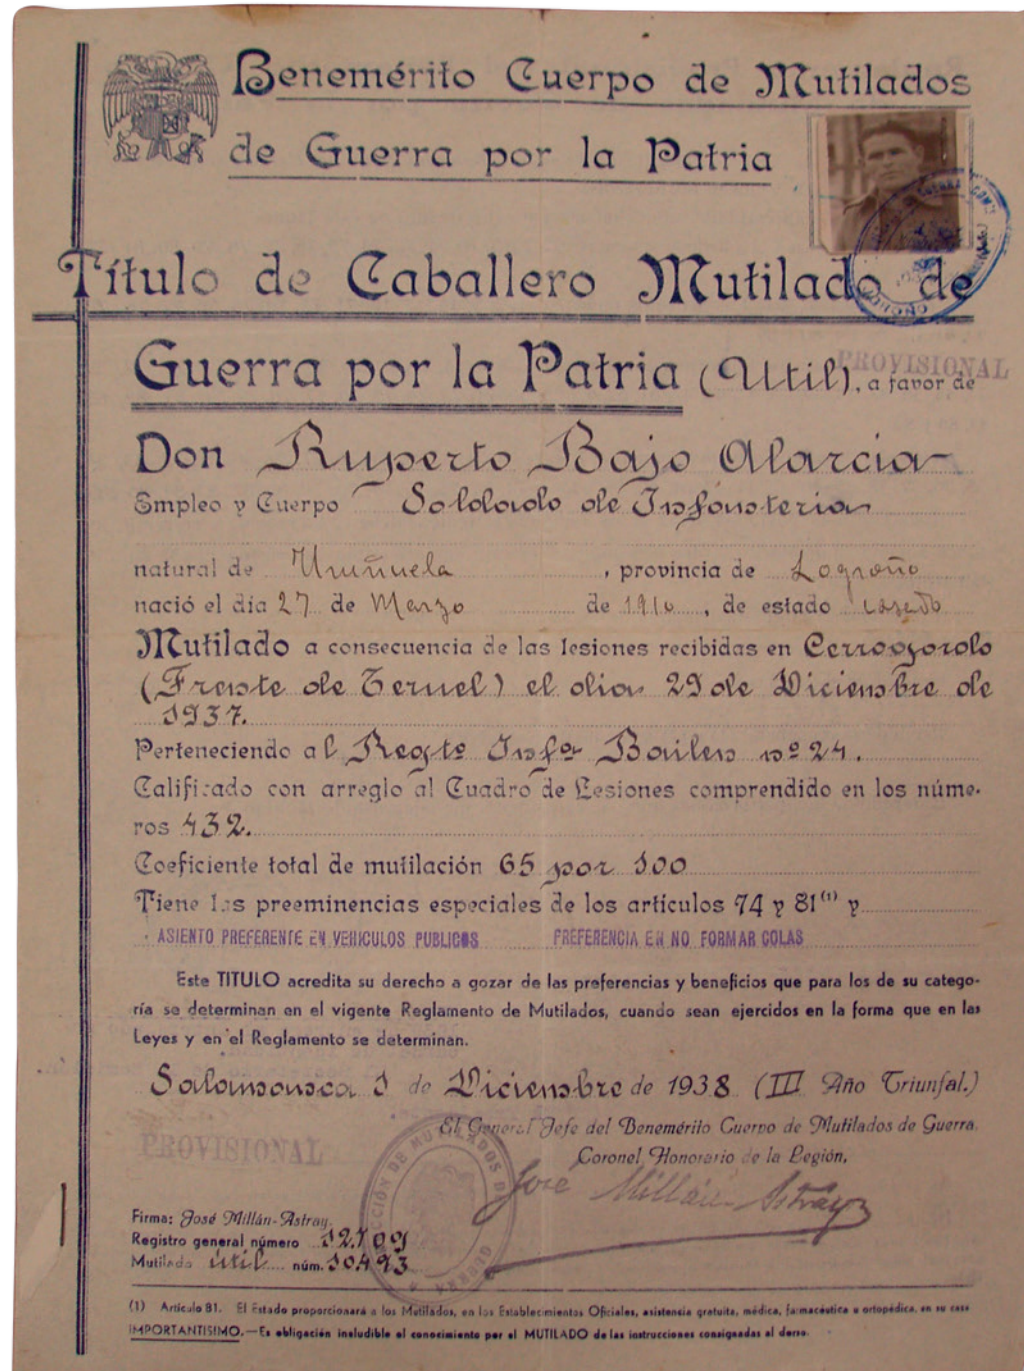 Benemérito Cuerpo de Mutilados
de Guerra por la Patria
Título de Caballero Mutilado de
Guerra por la Patria (Util), a favor de
PROVISIONAL
Don Ruperto Bajo Alarcia
Empleo y Cuerpo Soldado de Infanteria
natural de Uruñuela, provincia de Logroño
nació el día 27 de Marzo de 1910, de estado casado
Mutilado a consecuencia de las lesiones recibidas en Cerrogordo
(Frente de Teruel) el dia 29 de Diciembre de
1937.
Perteneciendo al Regtº Infª Bailen nº 24.
Calificado con arreglo al Cuadro de Lesiones comprendido en los núme-
ros 432.
Coeficiente total de mutilación 65 por 100
Tiene las preeminencias especiales de los artículos 74 y 81⁽¹⁾ y
ASIENTO PREFERENTE EN VEHICULOS PUBLICOS PREFERENCIA EN NO FORMAR COLAS
Este TITULO acredita su derecho a gozar de las preferencias y beneficios que para los de su catego-
ría se determinan en el vigente Reglamento de Mutilados, cuando sean ejercidos en la forma que en las
Leyes y en el Reglamento se determinan.
Salamanca 1 de Diciembre de 1938 (III Año Triunfal.)
El General Jefe del Benemérito Cuerpo de Mutilados de Guerra.
Coronel Honorario de la Legión,
PROVISIONAL
José Millán-Astray
DE MUTILADOS DE GUERRA
Firma: José Millán-Astray.
Registro general número 12.709
Mutilado útil núm. 10.493
(1) Artículo 81. El Estado proporcionará a los Mutilados, en los Establecimientos Oficiales, asistencia gratuita, médica, farmacéutica u ortopédica, en su caso
IMPORTANTISIMO.—Es obligación ineludible el conocimiento por el MUTILADO de las instrucciones consignadas al dorso.